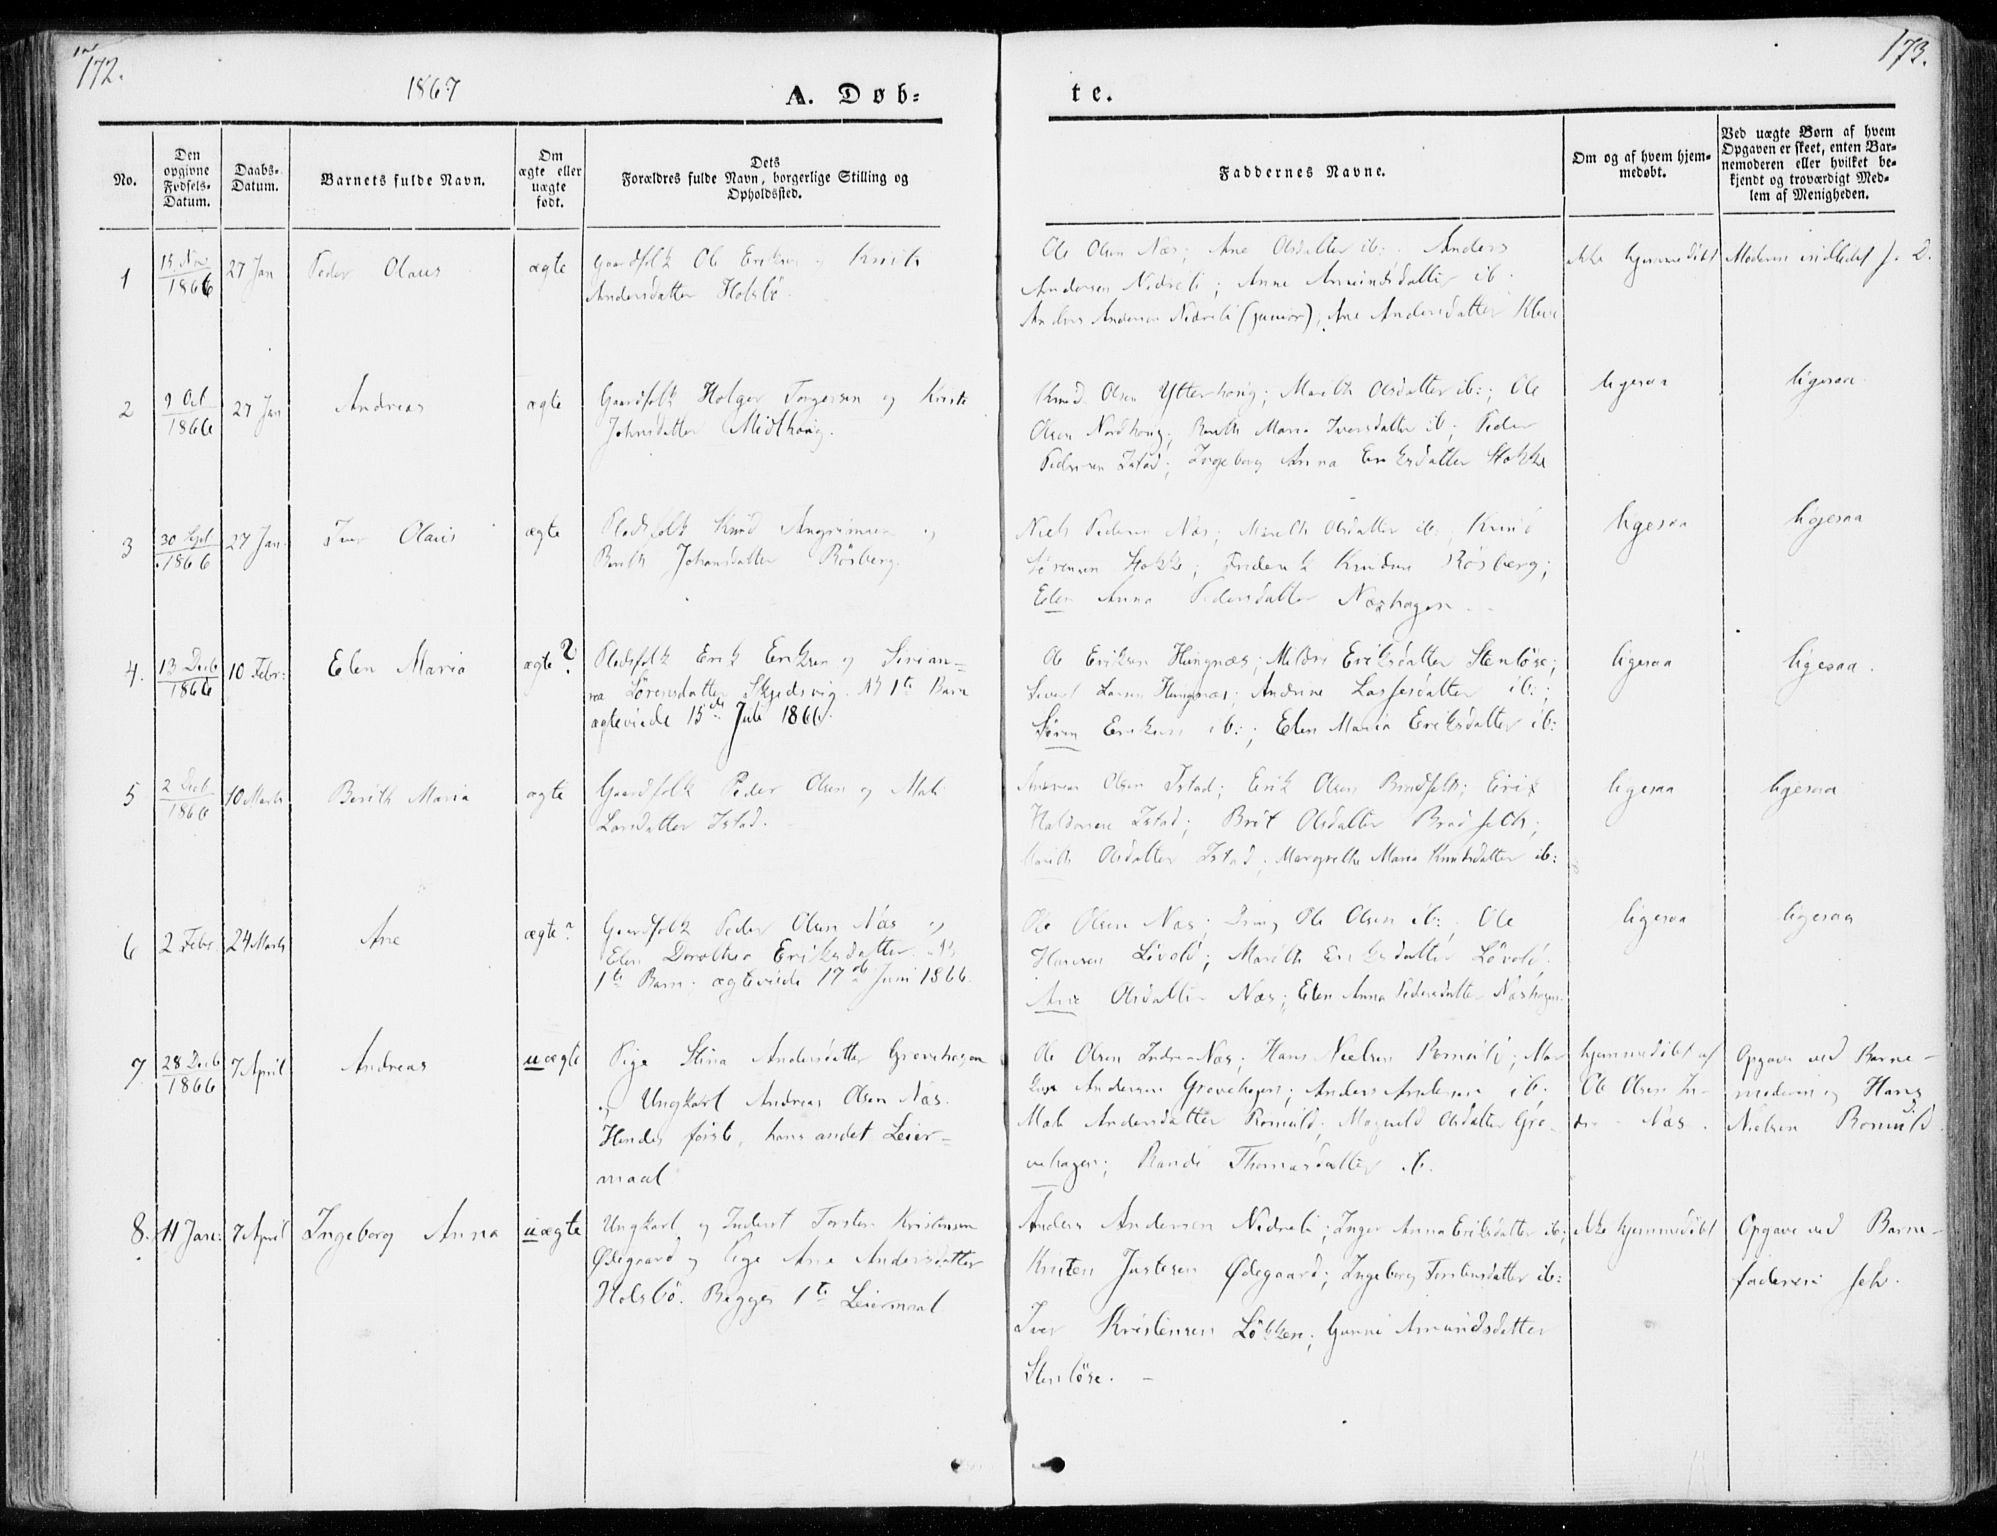 172.
1867
A. Døb=
te.
173.
No.
Den opgivne Fødsels-Datum.
Daabs-Datum.
Barnets fulde Navn.
Om ægte eller uægte født.
Dets Forældres fulde Navn, borgerlige Stilling og Opholdssted.
Faddernes Navne.
Om og af hvem hjem-medøbt.
Ved uægte Børn af hvem Opgaven er skeet, enten Bar-nemoderen eller hvilket be-kjendt og troværdigt Med-lem af Menigheden.
1
1866
27 Jan
Peder Olaus
ægte
Gaardfolk Ole Eriksen og
Andersdatter Holsbö.
Ole Olsen Næs; Ane Olsdatter ib: Anders
Andersen Nedreli; Anne Amundsdatter ib.
Anders Andersen Nedreli (junior); Ane Andersdatter Kleve
ikke hjemmedöbt
Moderen indledet s. D.
2
9 Oct
1866
27 Jan
Andreas
ægte
Gaardfolk Holger Torgersen og
Johnsdatter Midthaug.
Knud Olsen Ytterhaug; Marith Olsdatter ib:; Ole
Olsen Nordhaug; Berith Maria Iversdatter ib; Peder
Pedersen Istad; Ingeborg Anna Eriksdatter Hokke
ligesaa
ligesaa.
3
30 Sept
1866
27 Jan.
Iver Olaus
ægte
Pladsfolk Knud og
Berith Johansdatter Rösberg.
Niels Pedersen Næs; Marith Olsdatter ib:; Knud
Sörensen Hokke; Frederik Knudsen Rösberg;
Elen Anna Pedersdatter Næshagen
ligesaa
ligesaa
4.
13 Decb
1866
10 Febr:
Elen Maria
ægte?
Pladsfolk Erik Eriksen og
Sörensdatter Skjedsvig. NB 1te Barn
ægteviede 15de Juli 1866.
Ole Eriksen Hungnæs; Mildri Eriksdatter Stenlöse;
Sivert Larsen Hungnæs; Andrine Lassesdatter ib:;
Sören Eriksen ib:; Elen Maria Eriksdatter ib:
ligesaa
ligesaa.
5
2 Decb
1866
10 Marts
Berith Maria
ægte
Gaardfolk Peder Olsen og Mali
Larsdatter Istad.
Andreas Olsen Istad; Erik Olsen; Erik
Haldorsen Istad; Brit Olsdatter;
Marith Olsdatter Istad; Margrethe Maria Knudsdatter ib:
ligesaa
ligesaa
6
2 Febr
24 Marts
Ane
ægte?
Gaardfolk Peder Olsen Næs og
Elen Dorothea Eriksdatter. NB
1te Barn; ægteviede 17de Juni 1866.
Ole Olsen Næs; Ole Olsen ib:; Ole
Hansen Lövold; Marith Eriksdatter Lövold;
Ane Olsdatter Næs; Elen Anna Pedersdatter Næshagen
ligesaa
ligesaa
7
28 Decb
1866
7 April
Andreas
uægte
Pige Stina Andersdatter Grovehagen
og Ungkarl Andreas Olsen Næs.
Hendes förste, hans andet Leier=
maal
Ole Olsen Indre Næs; Hans Nielsen Romuld;
Andersen Grovehagen; Anders Andersen ib;
Mali Andersdatter Romuld; Magnild Olsdatter Gro-
vehagen; Randi Thomasdatter ib.
hjemmedöbt af
Ole Olsen In-
dre Næs.
Opgave ved Barne-
moderen og Hans
Nielsen Romuld.
8.
11 Jan:
7 April
Ingeborg Anna
uægte
Ungkarl og Inderst Torsten Kristensen
Ødegaard og Pige Ane Andersdatter
Holsbö. Begges 1te Leiermaal
Anders Andersen Nedreli; Inger Anna Eriksdatter ib;
Kristen Justesen Ødegaard; Ingeborg Torstensdatter ib:
Iver Kristensen Lökken; Gunni Amundsdatter
Stenlöse.
ikke hjemmedöbt
Opgave ved Barne-
faderen selv.